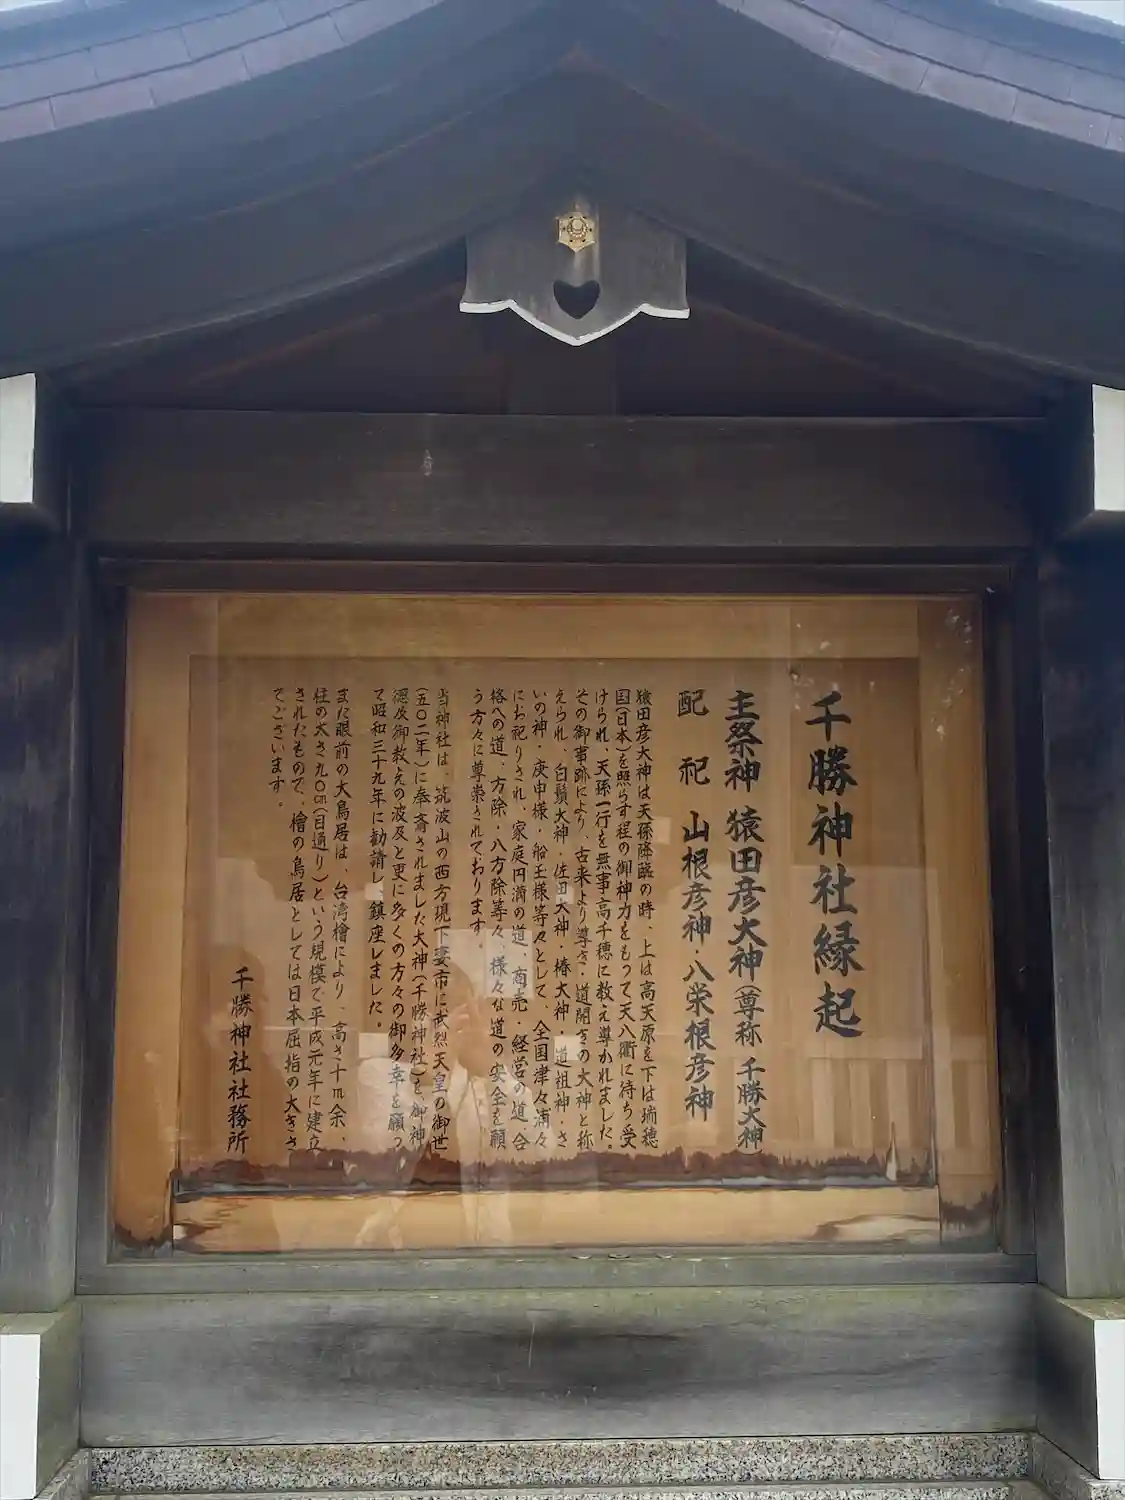 千勝神社縁起
主祭神 猿田彦大神(尊称 千勝大神)
配祀 山根彦神・八栄根彦神
猿田彦大神は天孫降臨の時、上は高天原を下は瑞穂
国(日本)を照らす程の御神力をもって天八衢に待ち受
けられ、天孫一行を無事高千穂に教え導かれました。
その御事跡により、古来より導き・道開きの大神と称
えられ、白鬚大神・佐田大神・椿大神・道祖神・さ
いの神・庚申様・船玉様等々として、全国津々浦々
にお祀りされ、家庭円満の道、商売・経営の道、合
格への道、方除・八方除等々、様々な道の安全を願
う方々に尊崇されております。
当神社は、筑波山の西方現下妻市に武烈天皇の御世
(五〇二年)に奉斎されました大神(千勝神社)を、御神
徳及御教えの波及と更に多くの方々の御多幸を願っ
て昭和三十九年に勧請し、鎮座しました。
また眼前の大鳥居は、台湾檜により、高さ十m余、
柱の太さ九〇㎝(目通り)という規模で平成元年に建立
されたもので、檜の鳥居としては日本屈指の大きさ
でございます。
千勝神社社務所